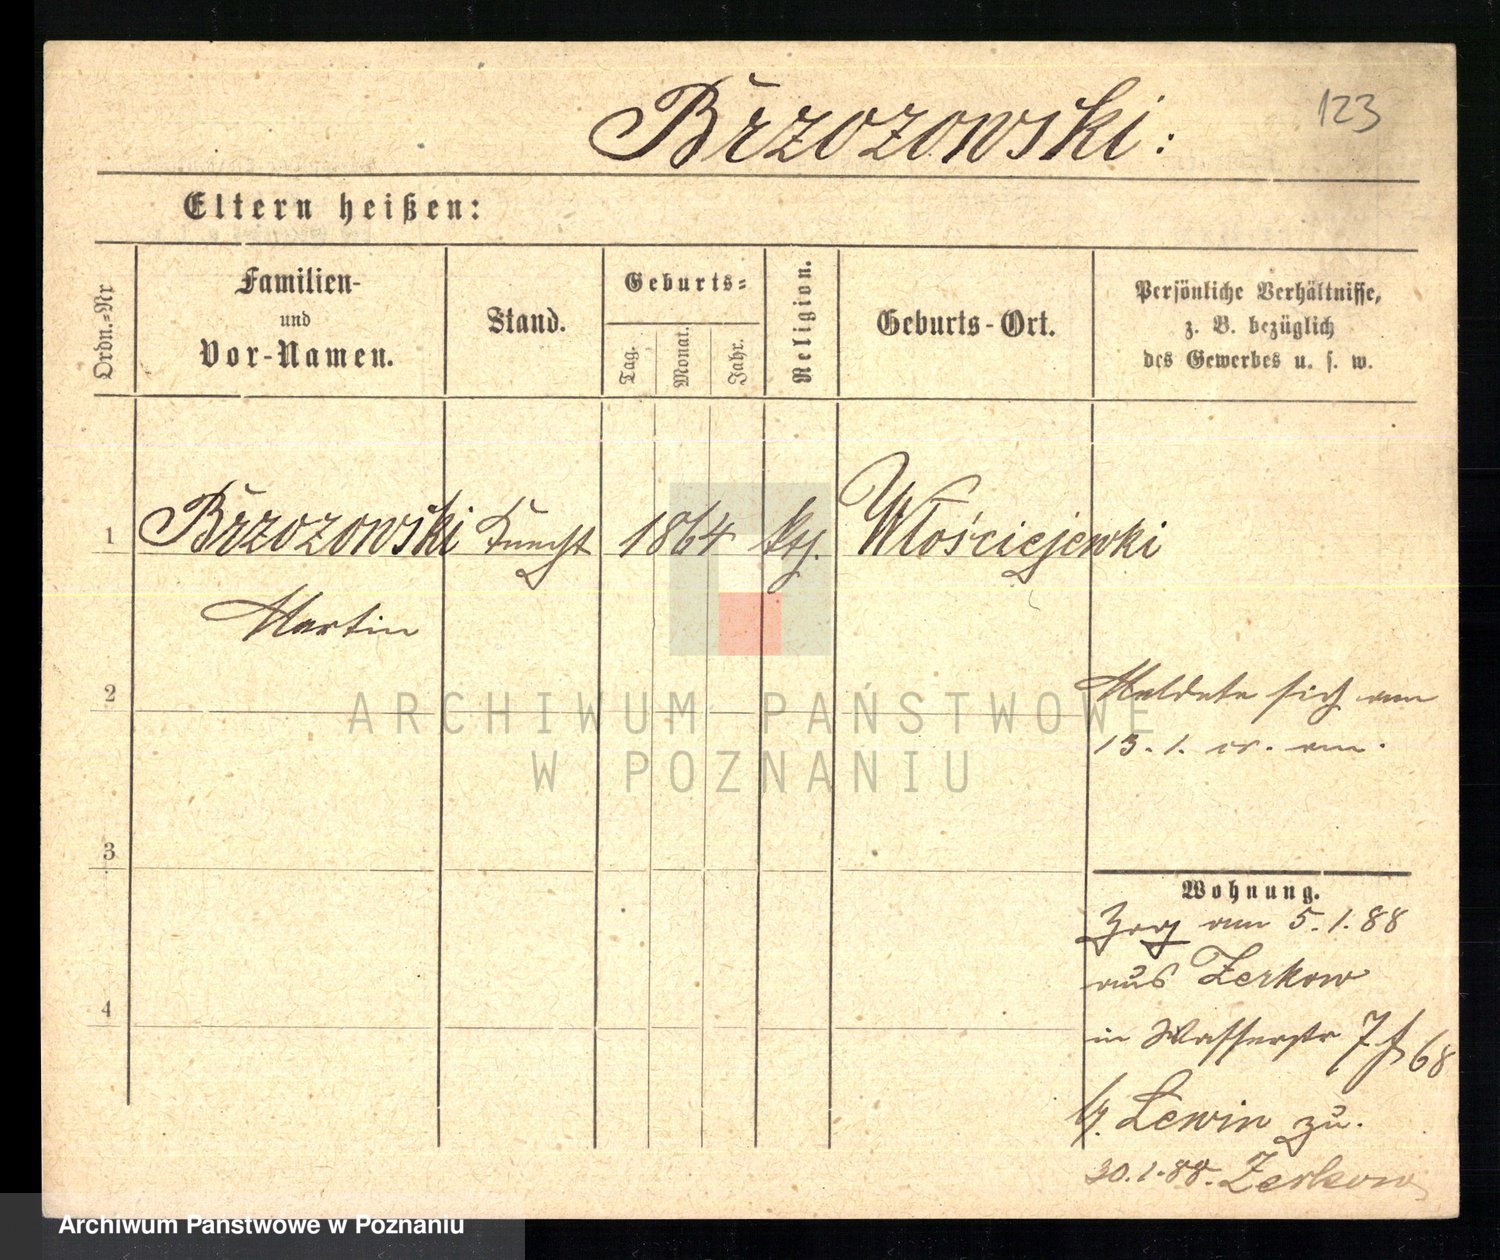 Brzozowski:
123
Eltern heißen:
Ordn.-Nr
Familien-
und
Vor-Namen.
Stand.
Geburts-
Tag.
Monat.
Jahr.
Religion.
Geburts-Ort.
Persönliche Verhältnisse,
z. B. bezüglich
des Gewerbes u. s. w.
1
Brzozowski Knecht 1864 kth. Włościejewki
Martin
2
Meldete sich am
13. 1. cr. an.
ARCHIWUM PAŃSTWOWE
W POZNANIU
3
Wohnung.
Zog am 5. 1. 88
aus Zerkow
4
in Wasserstr 7 68
b/. Lewin zu.
30. 1. 88. Zerkow
Archiwum Państwowe w Poznaniu